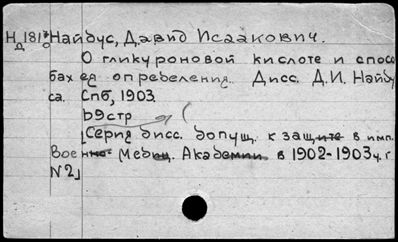 Н 181 Найдус, Давид Исаакович.
Д
О гликуроновой кислоте и спосо
бах ея определения. Дисс. Д.И. Найду
са. Спб, 1903.
69 стр (
[Серия дисс. допущ. к защите в имп.
Военно- Медиц. Академии в 1902-1903 ч. г.
N2]